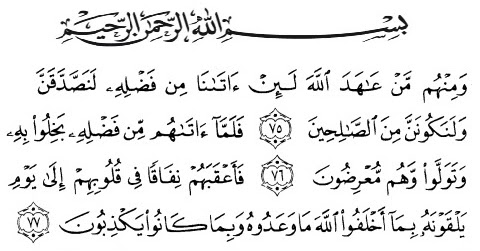 بِسْمِ اللَّهِ الرَّحْمَٰنِ الرَّحِيمِ
وَمِنْهُم مَّنْ عَاهَدَ اللَّهَ لَئِنْ ءَاتَانَا مِن فَضْلِهِ لَنَصَّدَّقَنَّ
وَلَنَكُونَنَّ مِنَ الصَّالِحِينَ ﴿٧٥﴾ فَلَمَّا ءَاتَاهُم مِّن فَضْلِهِ بَخِلُوا بِهِ
وَتَوَلَّوا وَّهُم مُّعْرِضُونَ ﴿٧٦﴾ فَأَعْقَبَهُمْ نِفَاقًا فِي قُلُوبِهِمْ إِلَىٰ يَوْمِ
يَلْقَوْنَهُ بِمَا أَخْلَفُوا اللَّهَ مَا وَعَدُوهُ وَبِمَا كَانُوا يَكْذِبُونَ ﴿٧٧﴾